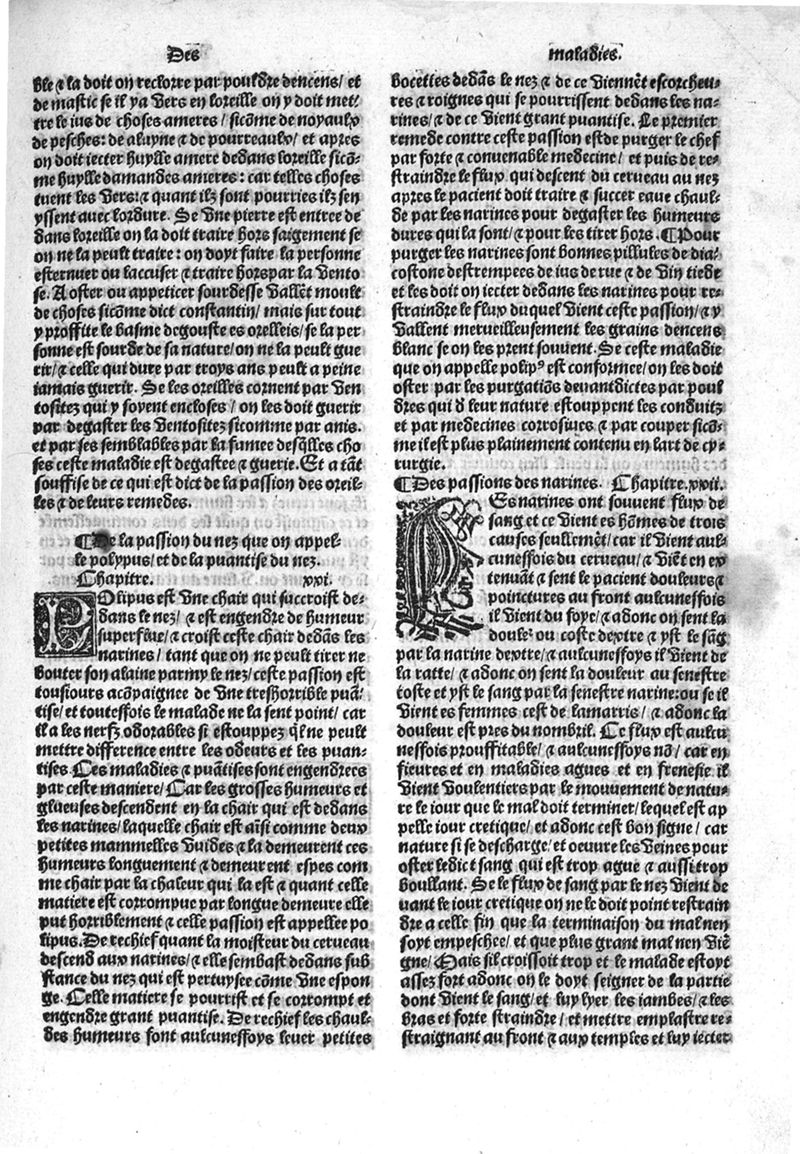 Des
ble ⁊ la doit on reclorre par pouldre dencens/ et
de mastic se il ya vers en loreille on y doit met-
tre le ius de choses ameres/ sicõme de noyaulx
de pesches: de aluyne ⁊ de pourreaulx/ et apres
on doit iecter huylle amere dedans loreille sicõ-
me huylle damandes ameres: car telles choses
tuent les vers: ⁊ quant ilz sont pourries ilz sen
yssent avec lordure. Se vne pierre est entree de
dans loreille on la doit traire hors saigement se
on ne la peult traire: on doyt faire la personne
esternuer ou laccuser ⁊ traire hors par la vento
se. A oster ou appeticer sourdesse vallẽt moult
de choses sicõme dict constantin/ mais sur tout
y proffite le basme degouste es orelleis/ se la per
sonne est sourde de sa nature/ on ne la peult gue
rir/ ⁊ celle qui dure par troys ans peult a peine
iamais guerir. Se les oreilles cornent par ven
tositez qui y soyent encloses/ on les doit guerir
par degaster les ventositez sicomme par anis.
et par ses semblables par la fumee desq̃lles cho
ses ceste maladie est degastee ⁊ guerie. Et a tãt
souffise de ce qui est dict de la passion des oreil-
les ⁊ de leurs remedes.
¶ De la passion du nez que on appel-
le polypus/ et de la puantise du nez.
Chapitre. xxi.
POlipus est vne chair qui succroist de-
dans le nez/ ⁊ est engendre de humeur
superflue/ ⁊ croist ceste chair dedãs les
narines/ tant que on ne peult tirer ne
bouter son alaine parmy le nez/ ceste passion est
tousiours acõpaignee de vne treshorrible puã-
tise/ et touteffois le malade ne la sent point/ car
il a les nerfz odorables si estouppez q̃l ne peult
mettre difference entre les odeurs et les puan-
tises. Ces maladies ⁊ puãtises sont engendrees
par ceste maniere/ Car les grosses humeurs et
glueuses descendent en la chair qui est dedans
les narines/ laquelle chair est aĩsi comme deux
petites mammelles vuides ⁊ la demeurent ces
humeurs longuement ⁊ demeurent espes com
me chair par la chaleur qui la est ⁊ quant celle
matiere est corrompue par longue demeure elle
put horriblement ⁊ celle passion est appellee po
lipus. De rechief quant la moisteur du cerveau
descend aux narines/ ⁊ elle sembast dedans sub
stance du nez qui est pertuysee cõme vne espon
ge. Celle matiere se pourrist et se corrompt et
engendre grant puantise. De rechief les chaul-
des humeurs font aulcuneffoys lever petites
maladies.
bocettes dedãs le nez ⁊ de ce viennẽt escorcheu-
res ⁊ roignes qui se pourrissent dedans les na-
rines/ ⁊ de ce vient grant puantise. Le premier
remede contre ceste passion est de purger le chef
par forte ⁊ convenable medecine/ et puis de re-
straindre le flux qui descent du cerveau au nez
apres le pacient doit traire ⁊ succer eave chaul-
de par les narines pour degaster les humeurs
dures qui la sont/ ⁊ pour les tirer hors. ¶ Pour
purger les narines sont bonnes pillules de dia-
costone destrempees de ius de rue ⁊ de vin tiede
et les doit on iecter dedans les narines pour re-
straindre le flux duquel vient ceste passion/ ⁊ y
vallent merveilleusement les grains dencens
blanc se on les prent souvent. Se ceste maladie
que on appelle polipꝰ est conformee/ on les doit
oster par les purgatiõs devantdictes par poul
dres qui d̃ leur nature estouppent les conduitz
et par medecines corrosives ⁊ par couper sicõ-
me il est plus plainement contenu en lart de cy-
rurgie.
¶ Des passions des narines. Chapitre. xxii.
LEs narines ont souvent flux de
sang et ce vient es hõmes de trois
causes seullemẽt/ car il vient aul-
cunessois du cerveau/ ⁊ viẽt en ex
tenuãt ⁊ sent le pacient douleurs ⁊
poinctures au front aulcuneffois
il vient du foye/ ⁊ adonc on sent la
doulez ou coste dextre ⁊ yst le sãg
par la narine dextre/ ⁊ aulcuneffoys il vient de
la ratte/ ⁊ adonc on sent la douleur au senestre
coste et yst le sang par la senestre narine: ou se il
vient es femmes cest de lamarris/ ⁊ adonc la
douleur est pres du nombril. Ce flux est aulcu
nessois prouffitable/ ⁊ aulcuneffoys nõ/ car en
fievres et en maladies agues et en frenesie il
vient voulentiers par le mouvement de natu-
re le iour que le mal doit terminer/ lequel est ap
pelle iour cretique/ et adonc cest bon signe/ car
nature si se descharge/ et oeuvre les veines pour
oster ledict sang qui est trop ague ⁊ aussi trop
boullant. Se le flux de sang par le nez vient de
vant le iour cretique on ne le doit point restrain
dre a celle fin que la terminaison du mal nen
soyt empeschee/ et que plus grant mal nen viẽ
gne/ Mais sil croissoit trop et le malade estoyt
assez fort adonc on le doyt seigner de la partie
dont vient le sang/ et luy lyer les iambes/ ⁊ les
bras et forte straindre/ et mettre emplastre re-
straignant au front ⁊ aux temples et luy iecter